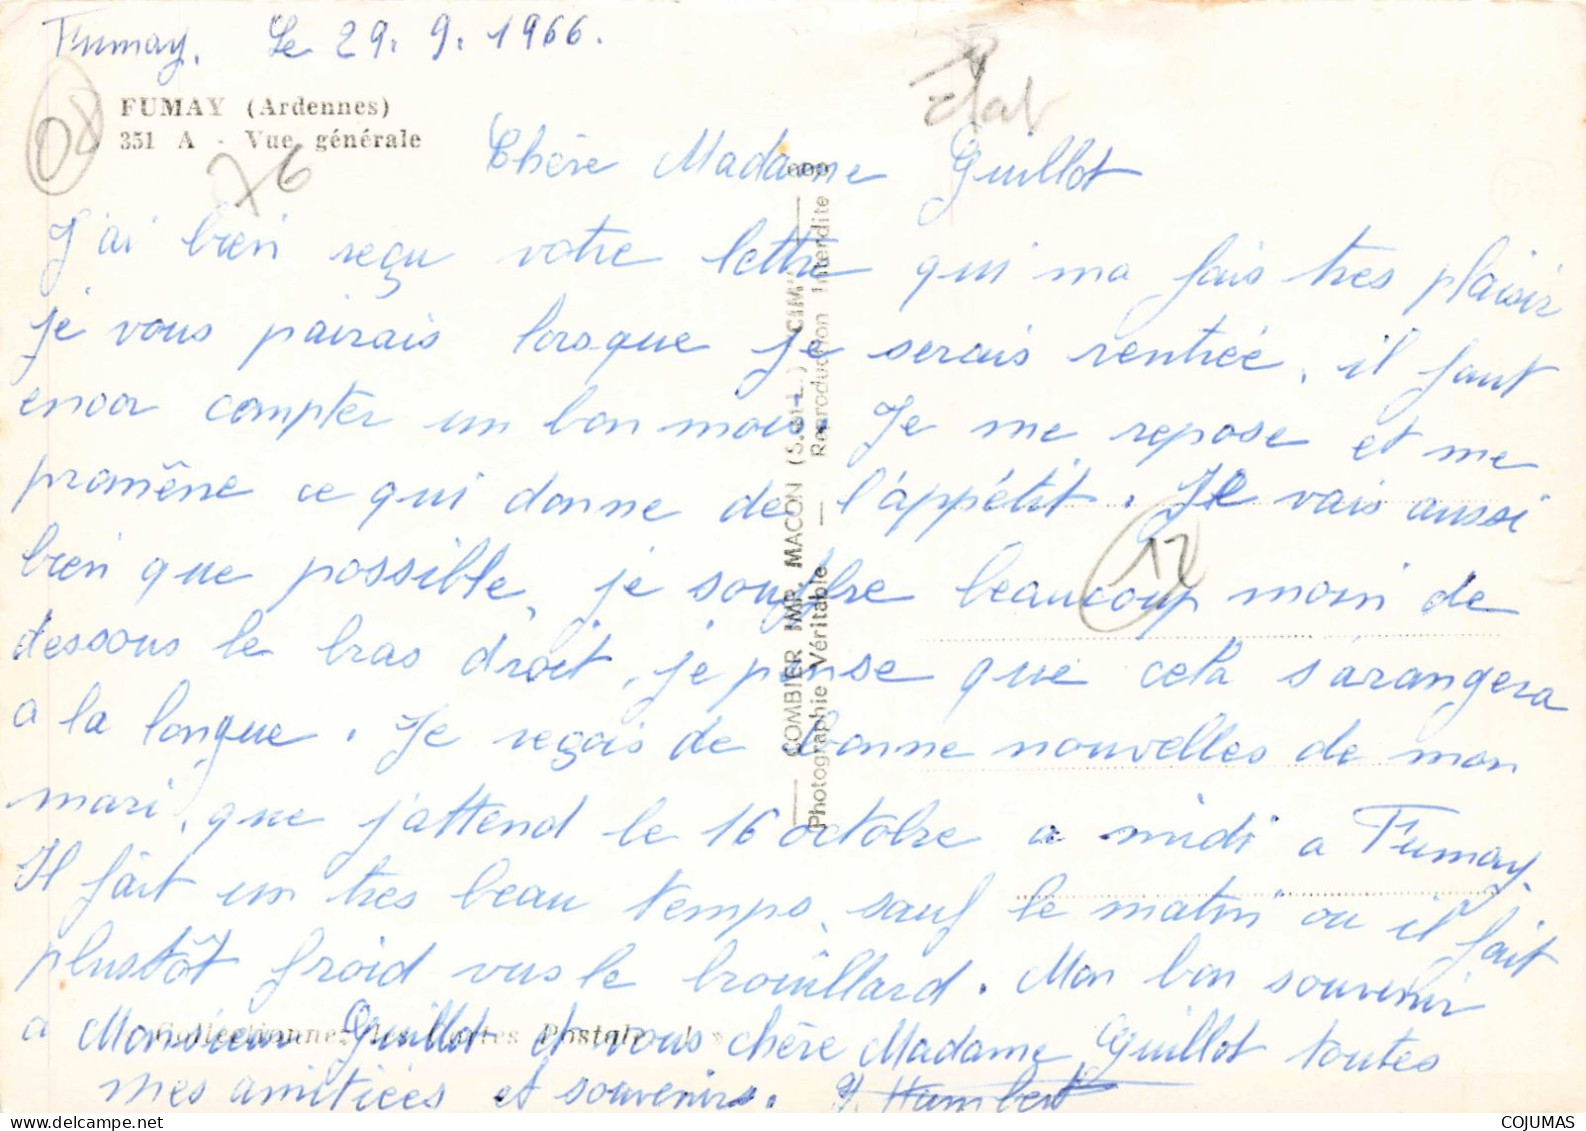 Fumay. Le 29. 9. 1966.
FUMAY (Ardennes)
351 A - Vue générale
08
76
12
Chère Madame Guillot
J'ai bien reçu votre lettre qui ma fais tres plaisir
je vous pairais lorsque je serais rentrée, il faut
encor compter un bon mois. Je me repose et me
promène ce qui donne de l'appétit. Je vais aussi
bien que possible, je souffre beaucoup moin de
dessous le bras droit, je pense que cela s'arangera
a la longue. Je reçois de bonne nouvelles de mon
mari, que j'attend le 16 octobre a midi a Fumay.
Il fait un tres beau temps, sauf le matin ou il fait
plustôt froid vus le brouillard. Mon bon souvenir
a Monsieur Guillot & vous chère Madame Guillot toutes
mes amitiées et souvenirs. Humbert
COMBIER IMP. MACON (S.-et-L.) "CIM"
Photographie Véritable — Reproduction Interdite
Collectionnez les Cartes Postales »
COJUMAS